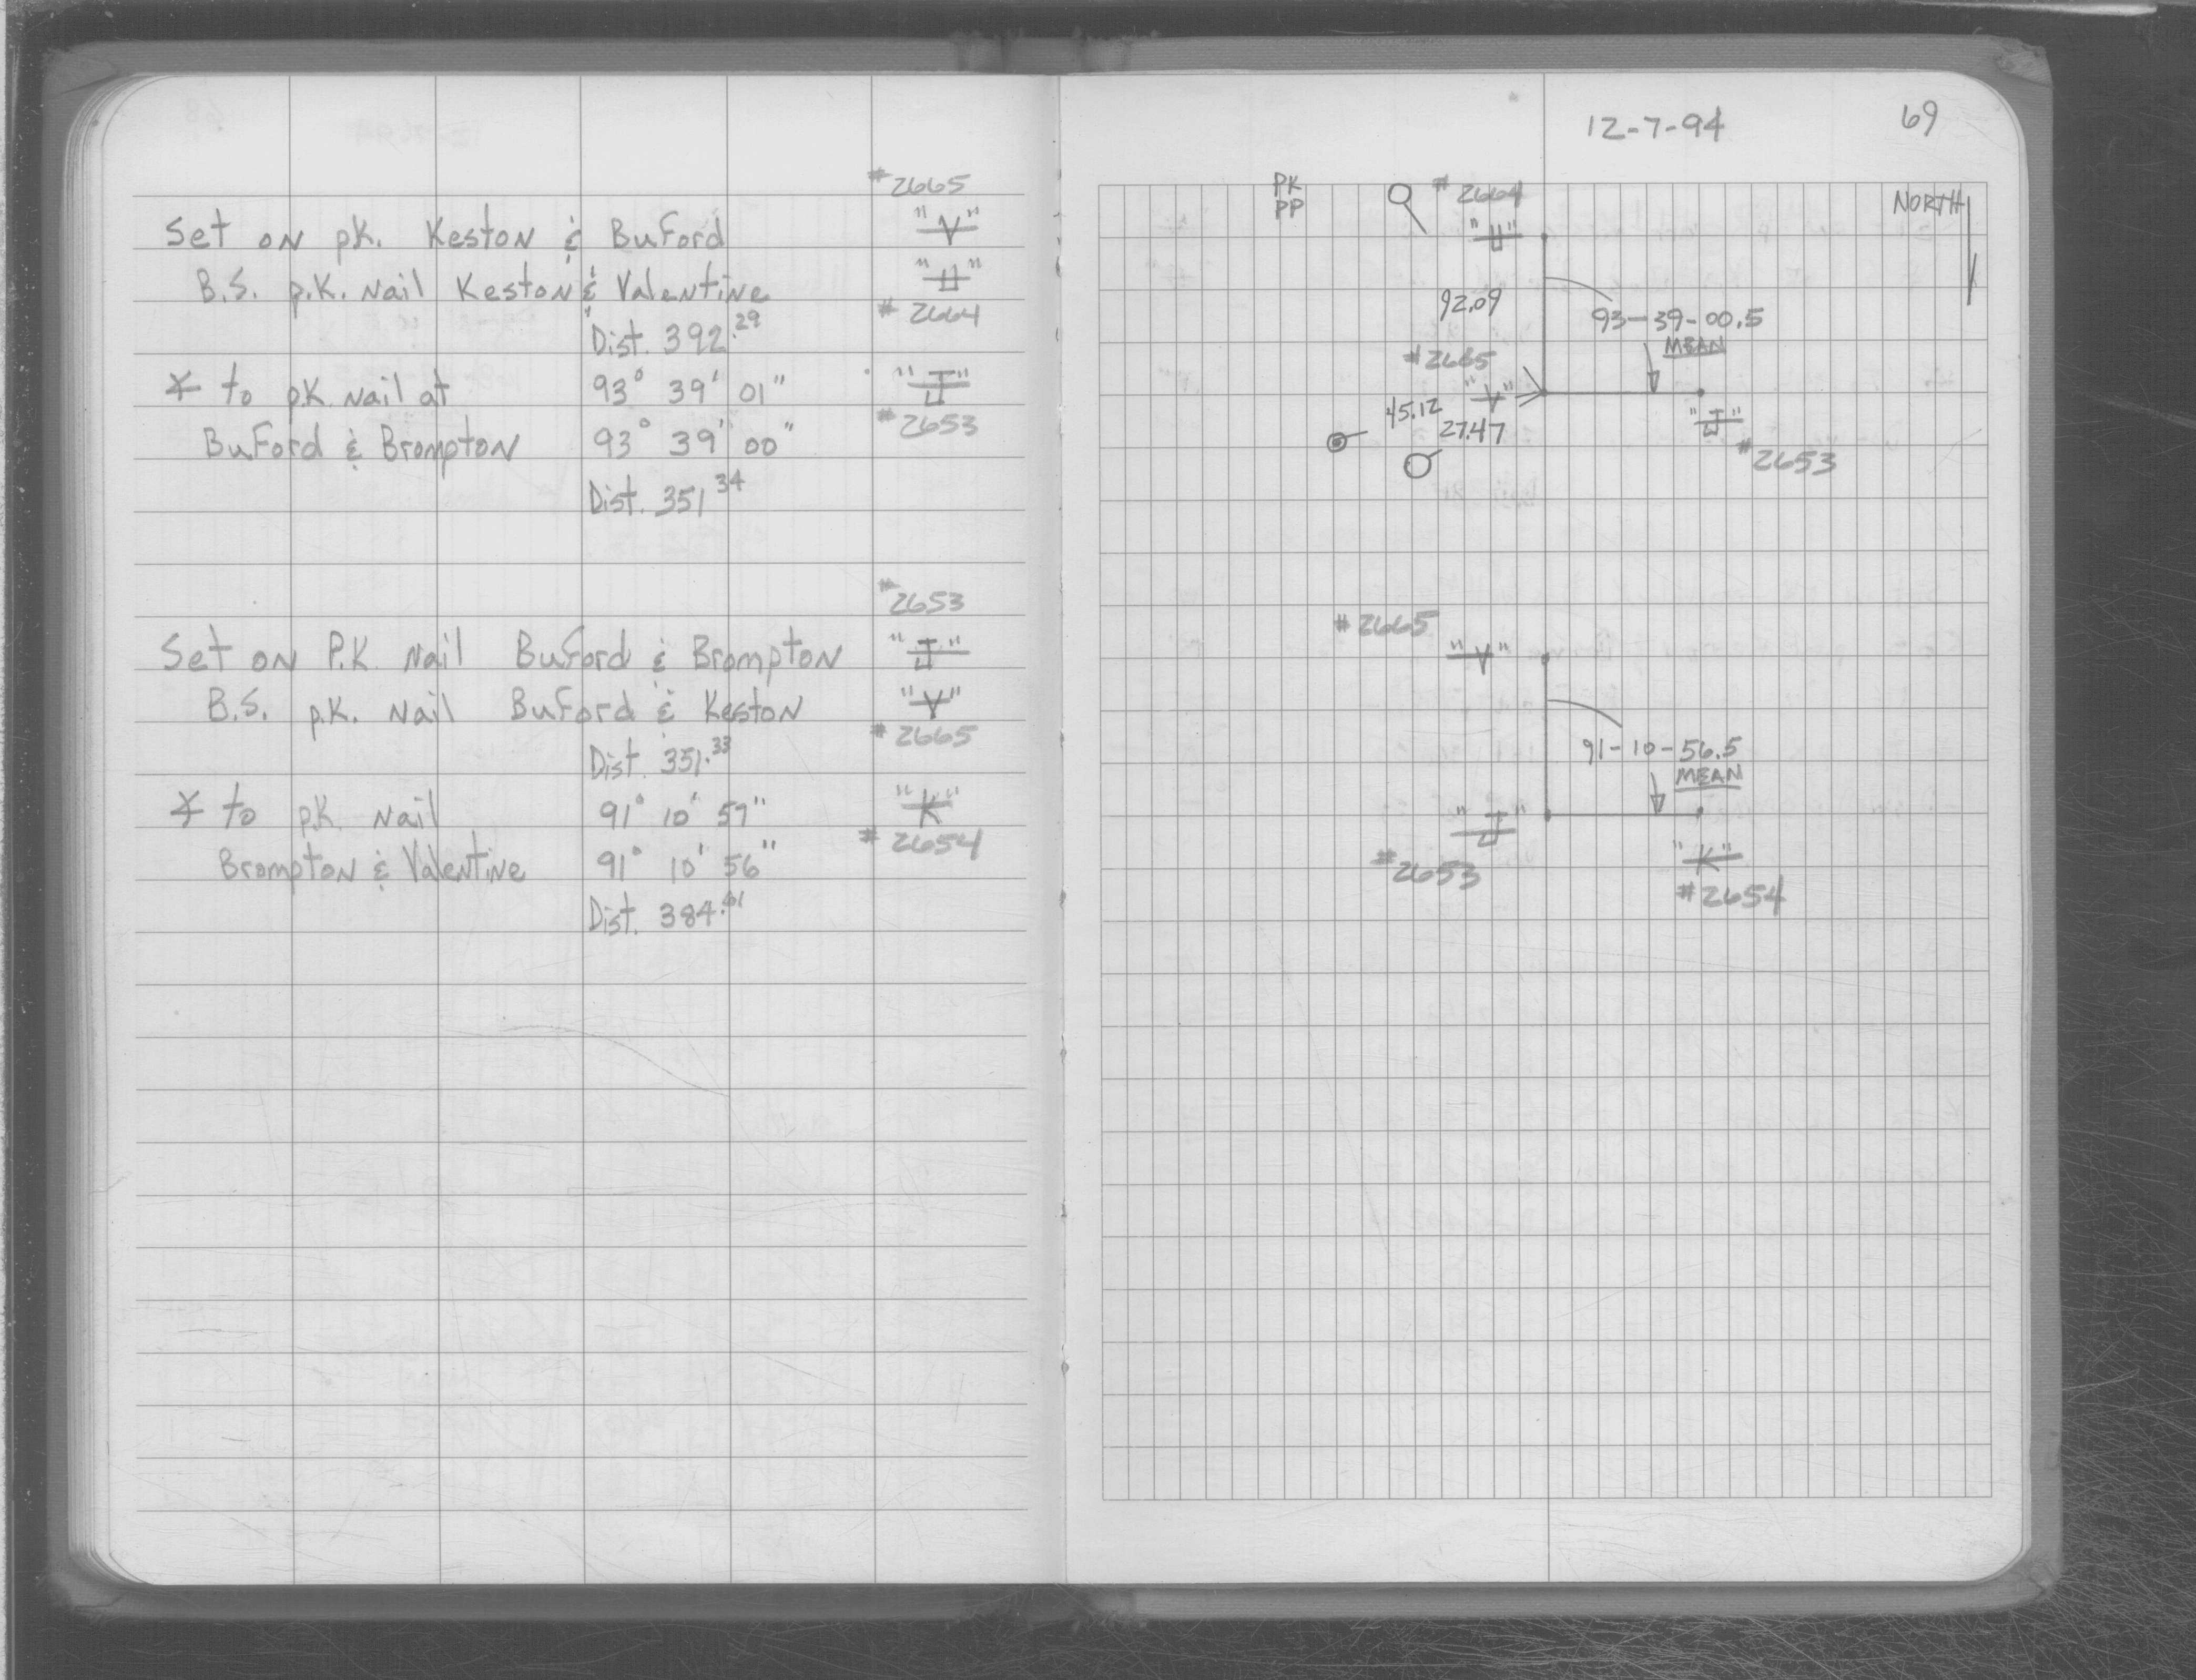 #2665
Set on pk. Keston & Buford "V"
B.S. p.K. Nail Keston & Valentine "U"
#2664
Dist. 392.29
∡ to p.K. Nail at 93° 39' 01" "J"
#2653
Buford & Brompton 93° 39' 00"
Dist. 351 34
#2653
Set on P.K. Nail Buford & Brompton "J"
B.S. p.K. Nail Buford & Keston "V"
#2665
Dist. 351.33
∡ to p.K. Nail 91° 10' 57" "K"
#2654
Brompton & Valentine 91° 10' 56"
Dist. 384.
12-7-94 69
PK
PP
#2664
"U"
NORTH
92.09
93-39-00.5
MEAN
#2665
"V"
45.12
27.47
"J"
#2653
#2665
"V"
91-10-56.5
MEAN
"J"
#2653
"K"
#2654